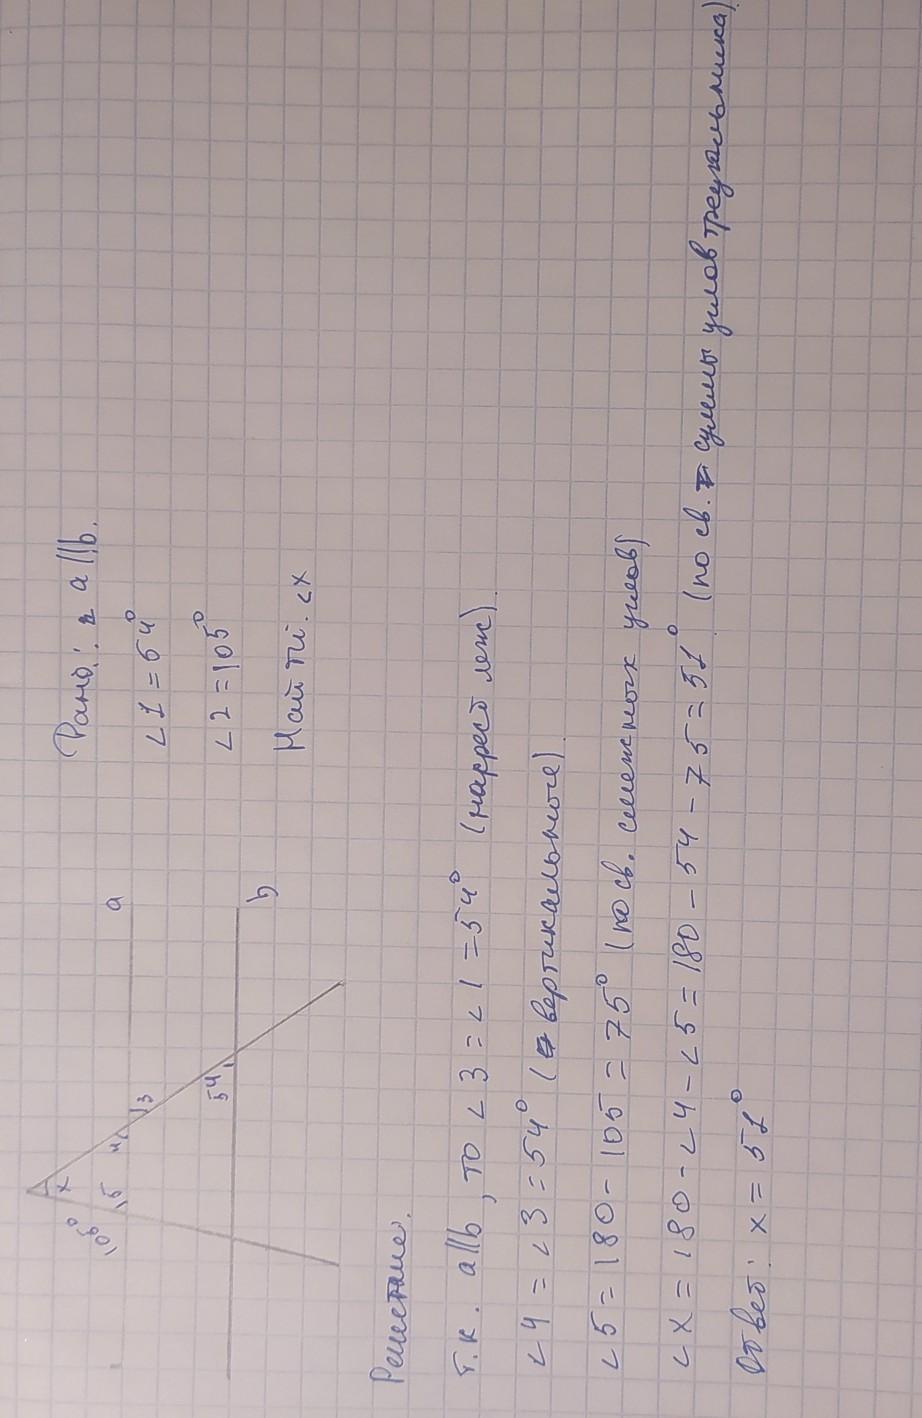 Дано: a||b.
∠1 = 54°
∠2 = 105°
Найти: ∠x
a
b
x
105°
5
4
3
54
Решение.
т.к. a||b, то ∠3 = ∠1 = 54° (накрест леж).
∠4 = ∠3 = 54° (вертикальные).
∠5 = 180 - 105 = 75° (по св. смежных углов)
∠x = 180 - ∠4 - ∠5 = 180 - 54 - 75 = 51° (по св. суммы углов треугольника)
Ответ: x = 51°